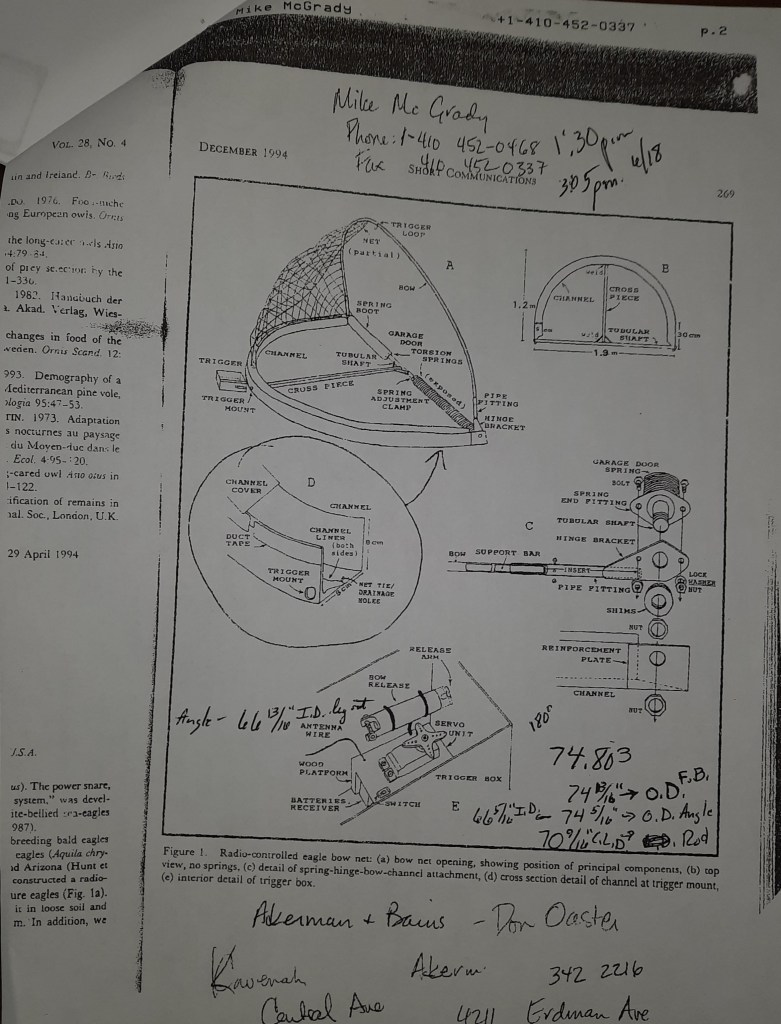 Mike McGrady
+1-410-452-0337
p.2
Mike Mc Grady
Phone: 1-410 452-0468 1:30 pm 6/18
Fax 410 452 0337 3:05 pm.
VOL. 28, NO. 4
DECEMBER 1994
SHORT COMMUNICATIONS
269
and Ireland.
1976.
European owls. Ornis
the long-eared owls Asio
4:79-84.
of prey selection by the
1-336.
1982. Handbuch der
Akad. Verlag, Wies-
changes in food of the
Sweden. Ornis Scand. 12:
993. Demography of a
Mediterranean pine vole,
ologia 95:47-53.
TIN. 1973. Adaptation
s nocturnes au paysage
du Moyen-duc dans le
Ecol. 4:95-120.
-eared owl Asio otus in
1-122.
ification of remains in
nal. Soc., London, U.K.
29 April 1994
J.S.A.
us). The power snare,
system," was devel-
ite-bellied sea-eagles
987).
breeding bald eagles
eagles (Aquila chry-
nd Arizona (Hunt et
constructed a radio-
ure eagles (Fig. 1a).
it in loose soil and
m. In addition, we
TRIGGER
LOOP
NET
(partial)
A
BOW
SPRING
BOOT
GARAGE
DOOR
TORSION
SPRINGS
(exposed)
CHANNEL
TUBULAR
SHAFT
TRIGGER
CROSS PIECE
SPRING
ADJUSTMENT
CLAMP
TRIGGER
MOUNT
PIPE
FITTING
HINGE
BRACKET
B
weld
CHANNEL
CROSS
PIECE
1.2 m
weld
TUBULAR
SHAFT
30 cm
1.9 m
CHANNEL
COVER
D
CHANNEL
DUCT
TAPE
CHANNEL
LINER
(both
sides)
8 cm
TRIGGER
MOUNT
NET TIE/
DRAINAGE
HOLES
8 cm
C
GARAGE DOOR
SPRING
BOLT
SPRING
END FITTING
TUBULAR SHAFT
HINGE BRACKET
BOW
SUPPORT BAR
INSERT
PIPE FITTING
LOCK
WASHER
NUT
SHIMS
NUT
REINFORCEMENT
PLATE
CHANNEL
NUT
RELEASE
ARM
BOW
RELEASE
ANTENNA
WIRE
SERVO
UNIT
WOOD
PLATFORM
TRIGGER BOX
BATTERIES
RECEIVER
SWITCH
E
Angle - 66 13/16" I.D. leg out
180°
74.803
74 13/16" → O.D. F.B.
66 5/16" I.D. - 74 5/16" → O.D. Angle
70 9/16" C.L.D → Rod
Figure 1. Radio-controlled eagle bow net: (a) bow net opening, showing position of principal components, (b) top
view, no springs, (c) detail of spring-hinge-bow-channel attachment, (d) cross section detail of channel at trigger mount,
(e) interior detail of trigger box.
Akerman + Bains - Don Oaster
Kavenah Akerm. 342 2216
Central Ave 4211 Erdman Ave